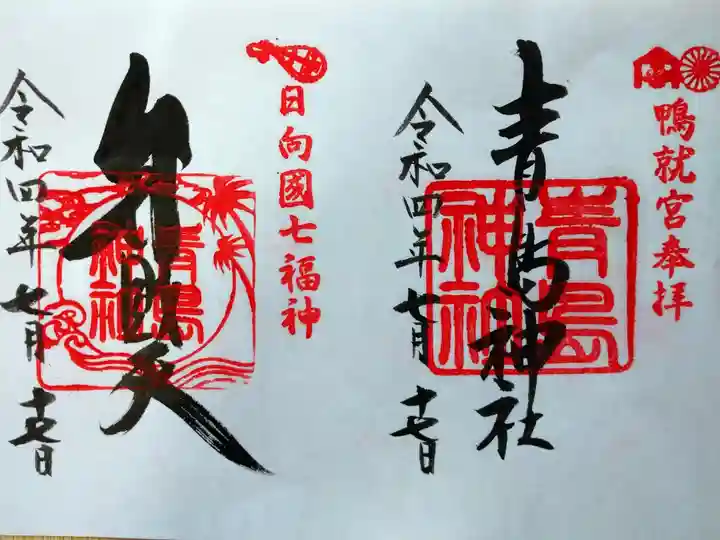 鴨就宮奉拝
青島神社
青島神社
令和四年七月十七日
日向國七福神
弁財天
青島神社
令和四年七月十七日